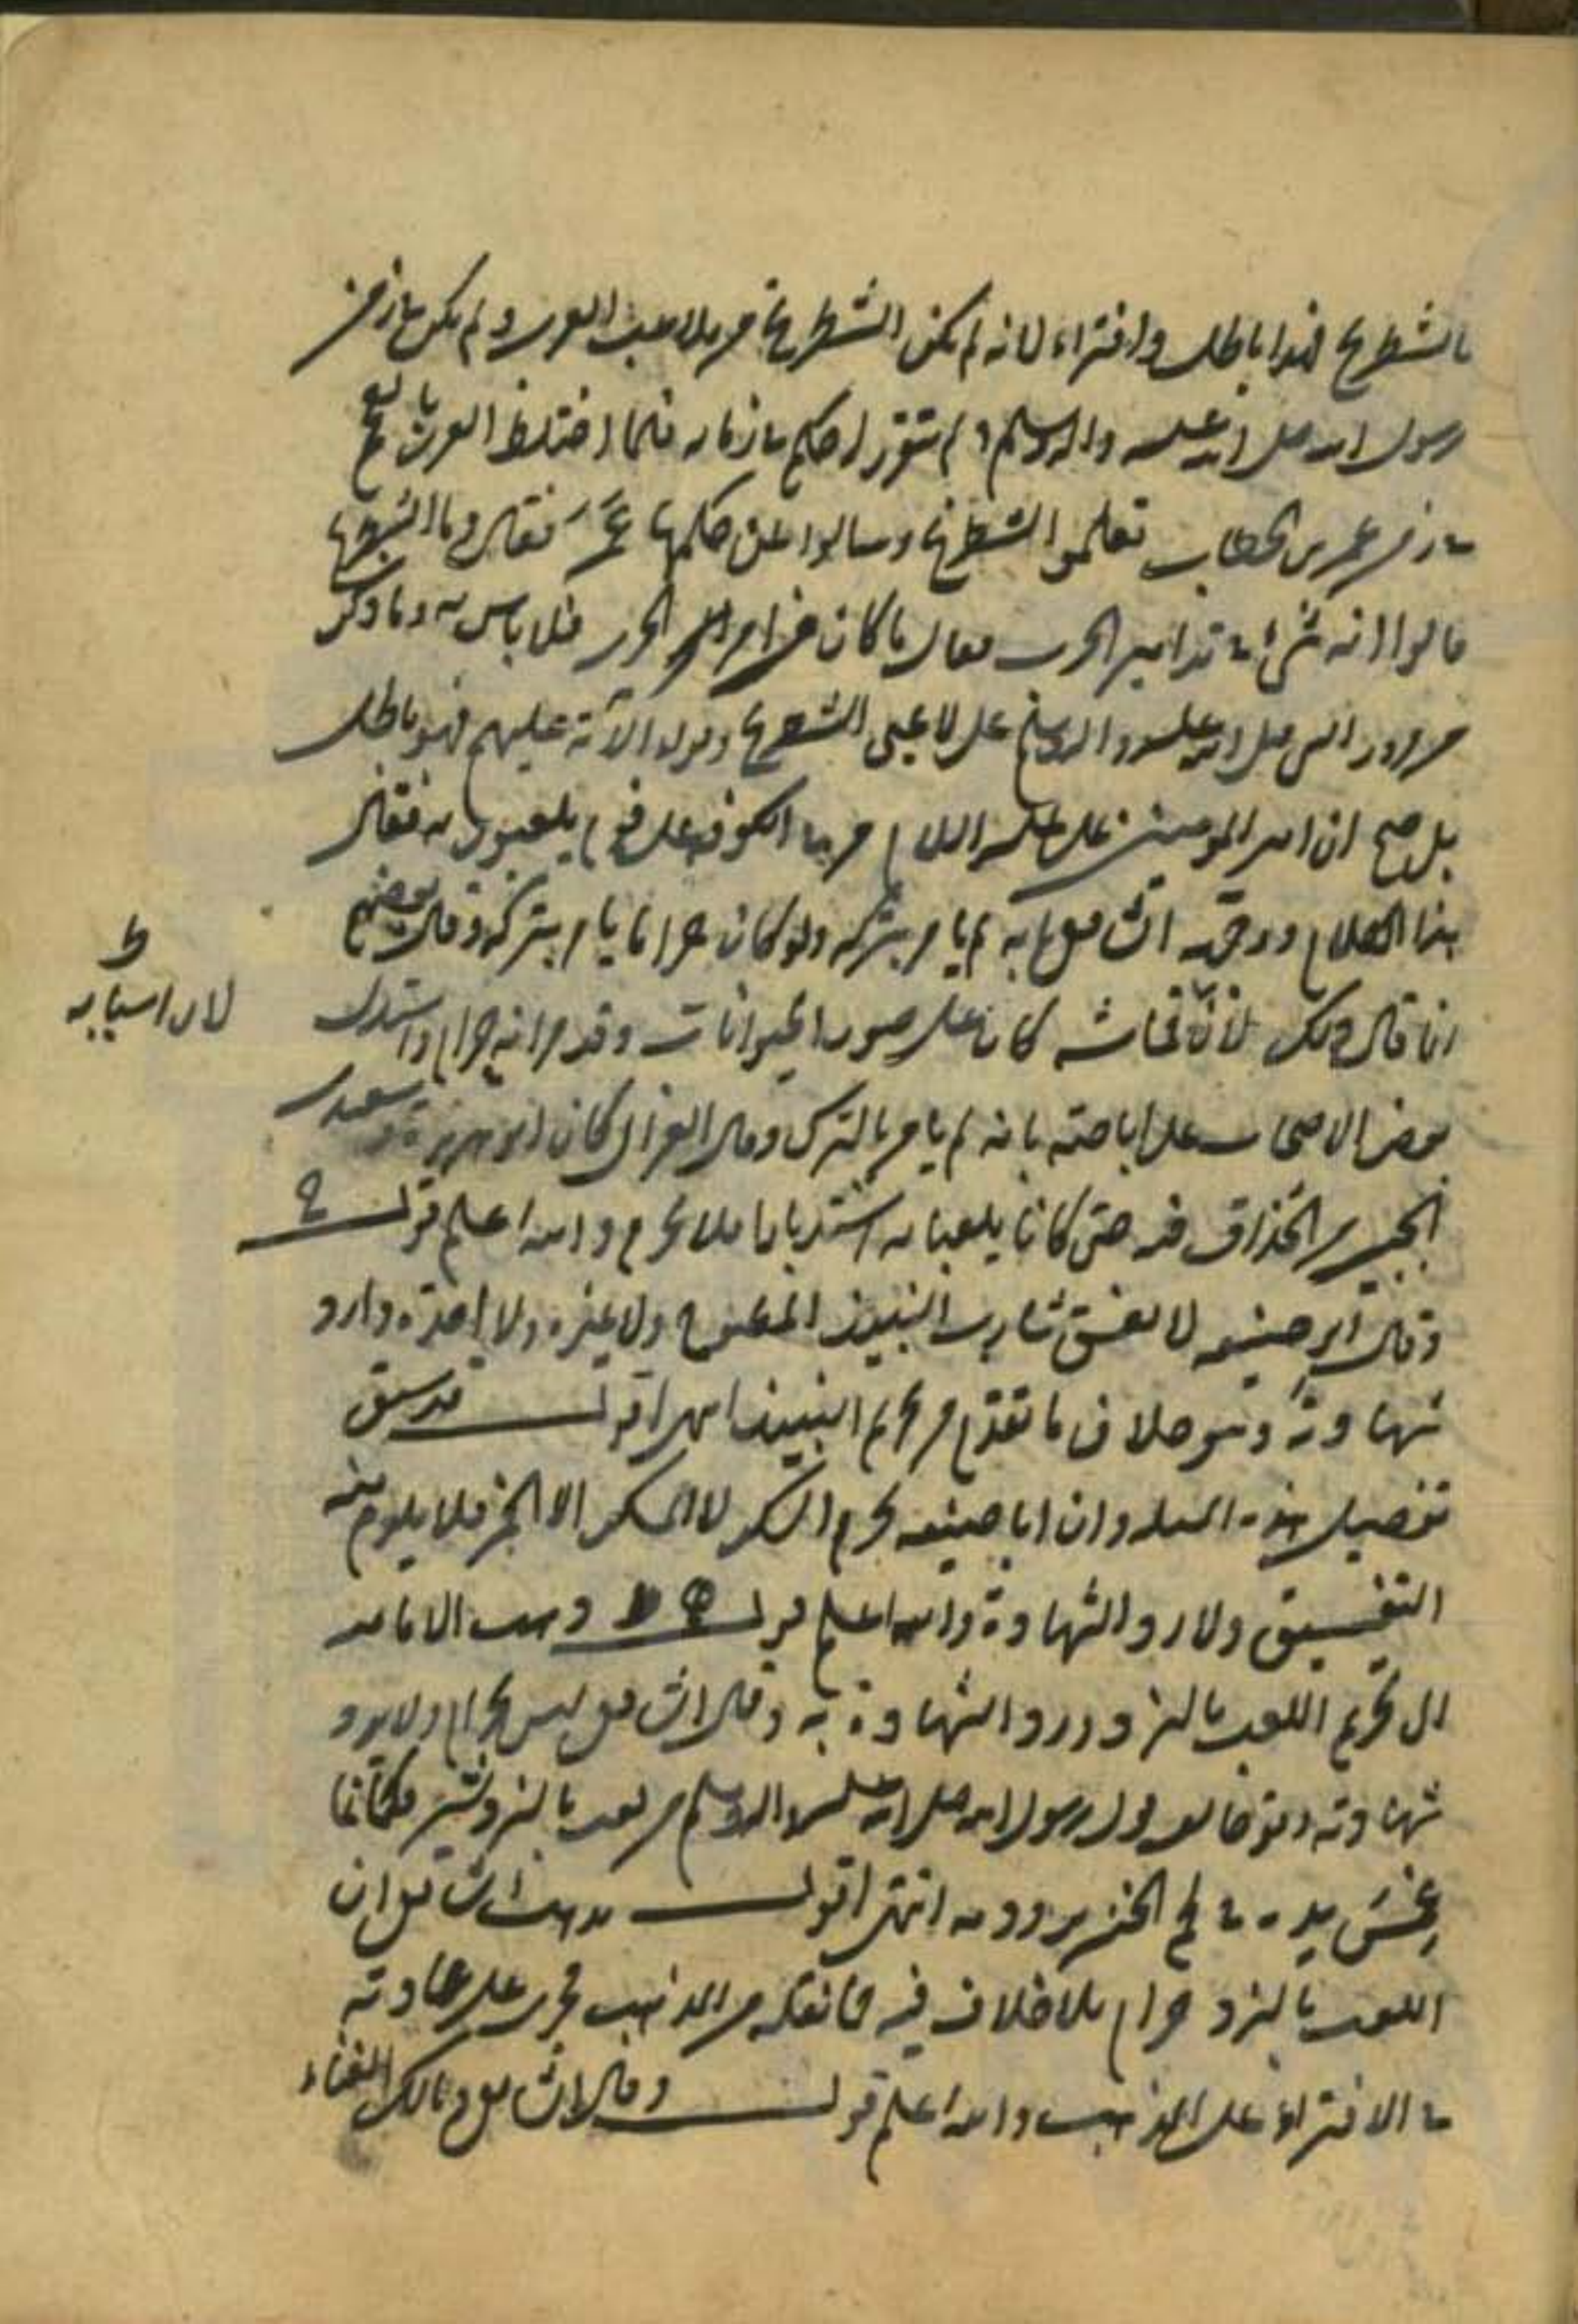 بالشطرنج فهذا باطل وافتراء لانه لم يكن الشطرنج من ملاعب العرب ولم يكن في زمن
رسول الله صلى الله عليه واله وسلم ولم يتقرر له حكم في زمانه فلما اختلط العرب بالعجم
في زمن عمر بن الخطاب تعلموا الشطرنج وسالوا عن حكمها عمر فقال وما الشطرنج
قالوا انه شيء في تدابير الحرب فقال ما كان من امر الحرب فلا باس به وما ذكر
مرور النبي صلى الله عليه واله وسلم على لاعبي الشطرنج وقوله الآية عليهم فهو باطل
بل صح ان امير المومنين علي عليه السلام مر في الكوفة على قوم يلعبون به فقال
هذا الكلام ووجه الشافعي انه لم يامر بتركه ولو كان حراما يامر بتركه وقال بعضهم
انما قال ذلك لان كان على صور الحيوانات وقد مر انه حرام واستدل
لان اسبابه
بعض الاصحاب على اباحته بانه لم يامر بالترك وقال الغزالي كان ابو هريرة وسعيد بن
الجبير من الحذاق فيه حتى كانا يلعبان به استدبارا فلا يحرم والله اعلم قوله
وقال ابو حنيفة لا يفسق شارب النبيذ المطبوخ ولا غيره ولا احده ولا ارد
شهادته وهو خلاف ما تقدم من تحريم النبيذ انتهى اقول قد سبق
تفصيل هذه المسئلة وان ابا حنيفة يحرم السكر لا المسكر الا الخمر فلا يلزم منه
التفسيق ولا رد الشهادة والله اعلم قوله ذهبت الامامية
الى تحريم اللعب بالنرد ورد الشهادة به وقال الشافعي ليس بحرام ولا يرد
شهادته وهو خالف قول رسول الله صلى الله عليه واله وسلم من لعب بالنردشير فكانما
غمس يده في لحم الخنزير ودمه انتهى اقول مذهب الشافعي ان
اللعب بالنرد حرام بلا خلاف فيه فما نقله من المذهب فجرى على عادته
في الافتراء على المذهب والله اعلم قوله وقال الشافعي ومالك الغناء